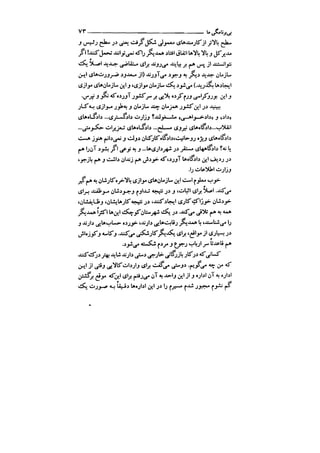 بی‌برنامگی ما ــــــ ۷۳
سطح بالاتر از کارمندهای معمولی شکل گرفت یعنی در سطح رئیس و
مدیرکل و بالا بالاها اتفاق افتاد همدیگر را که نمی‌توانند تحمل کنند؟ اگر
نتوانستند از پس هم بر بیایند می‌روند برای متقاضی جدید اصلاً یک
سازمان جدید دیگر به وجود می‌آورند (از معدود ضرورت‌های این
ایجادها بگذرید.) می‌شود یک سازمان موازی، و این سازمان‌های موازی
و این بوروکراسی ورم کرده بلایی بر سر کشور آورده که نگو و نپرس.
ببینید در این کشور همزمان چند سازمان و به‌طور موازی به کار
«داد» و «دادخواهی» مشغولند؟ وزارت دادگستری... دادگاه‌های
انقلاب... دادگاه‌های نیروی مسلح... دادگاه‌های تعزیرات حکومتی...
دادگاه‌های ویژه روحانیت، دادگاه کارکنان دولت و نمی‌دانم هنوز هست
یا نه؟ دادگاههای مستقر در شهرداری‌ها... و به نوعی اگر بشود آن را هم
در ردیف این دادگاه‌ها آورد، که خودش هم زندان داشت و هم بازجو،
وزارت اطلاعات را.
خوب معلوم است این سازمان‌های موازی بالاخره کارشان به هم گیر
می‌کند. اصلاً برای اثبات، و در نتیجه تداوم وجودشان موظفند برای
خودشان خوراک کاری ایجاد کنند، در نتیجه کارهایشان، وظایفشان،
همه به هم تلاقی می‌کند. در یک شهرستان کوچک این‌ها اکثراً همدیگر
را می‌شناسند، با همدیگر رقابت‌هایی دارند، خورده حساب‌هایی دارند و
در بسیاری از مواقع، برای یکدیگر کارشکنی می‌کنند. و کاسه و کوزه‌اش
هم قاعدتاً سر ارباب رجوع و مردم شکسته می‌شود.
کسانی که در کار بازرگانی خارجی دستی دارند، شاید بهتر درک کنند
که من چه می‌گویم. دوستی می‌گفت برای واردات کالایی وقتی از این
اداره به آن اداره و از این واحد به آن می‌رفتم برای این‌که موقع برگشتن
گم نشوم مجبور شدم مسیرم را در این اداره‌ها دقیقاً به صورت یک